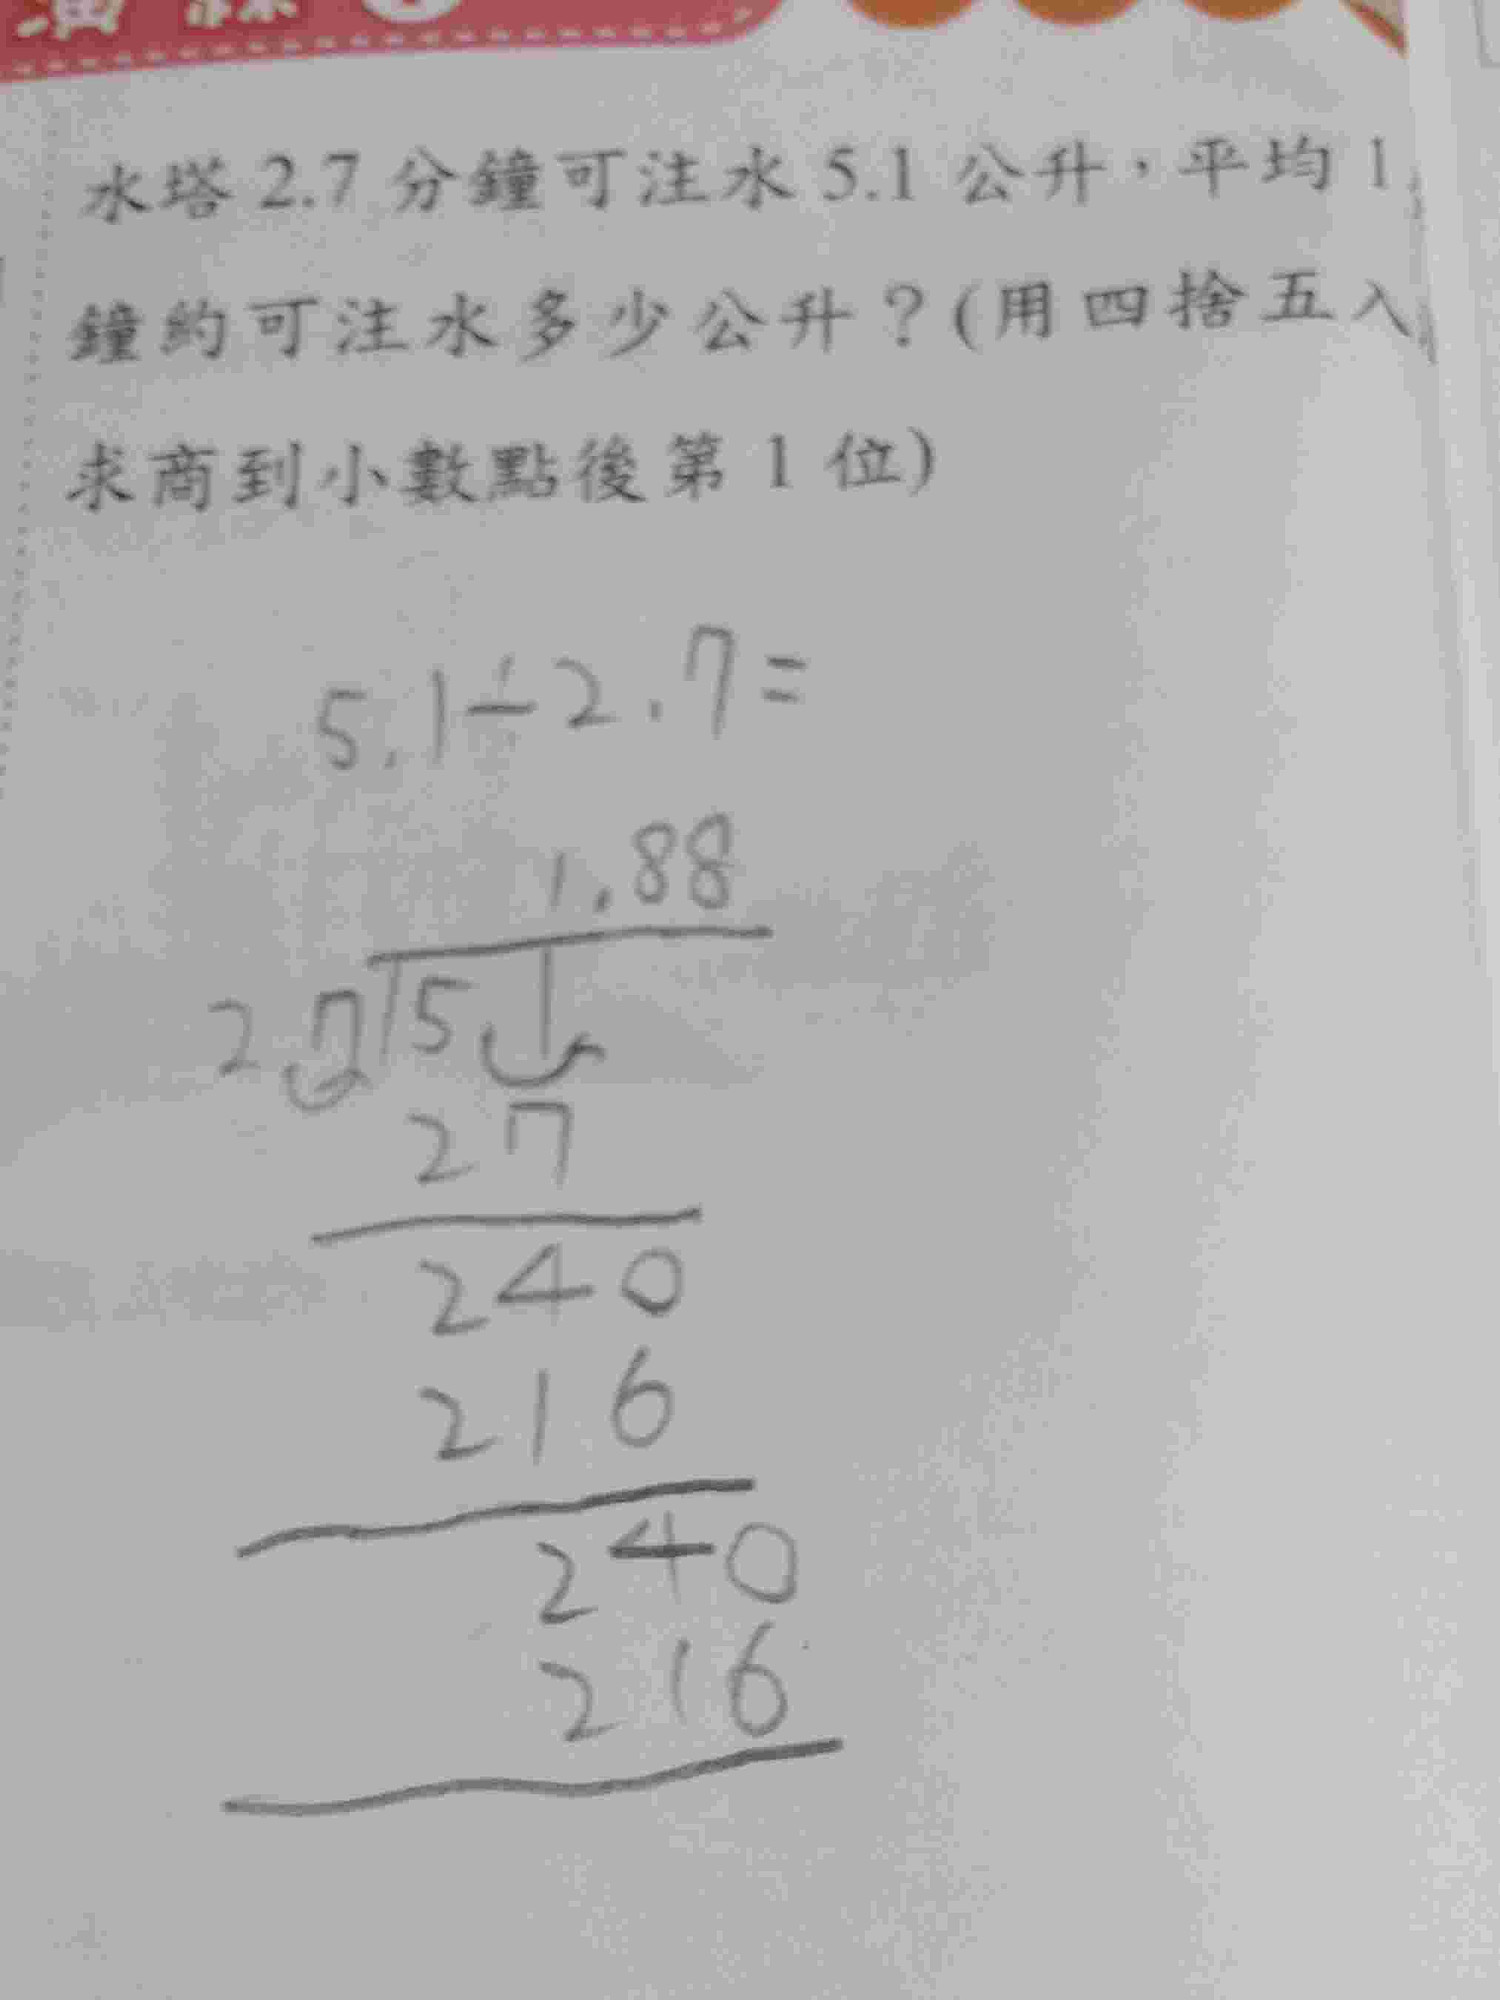 水塔 2.7 分鐘可注水 5.1 公升，平均 1
鐘約可注水多少公升？(用四捨五入
求商到小數點後第 1 位)
5.1÷2.7=
1.88
2.7 5 1
27
240
216
240
216